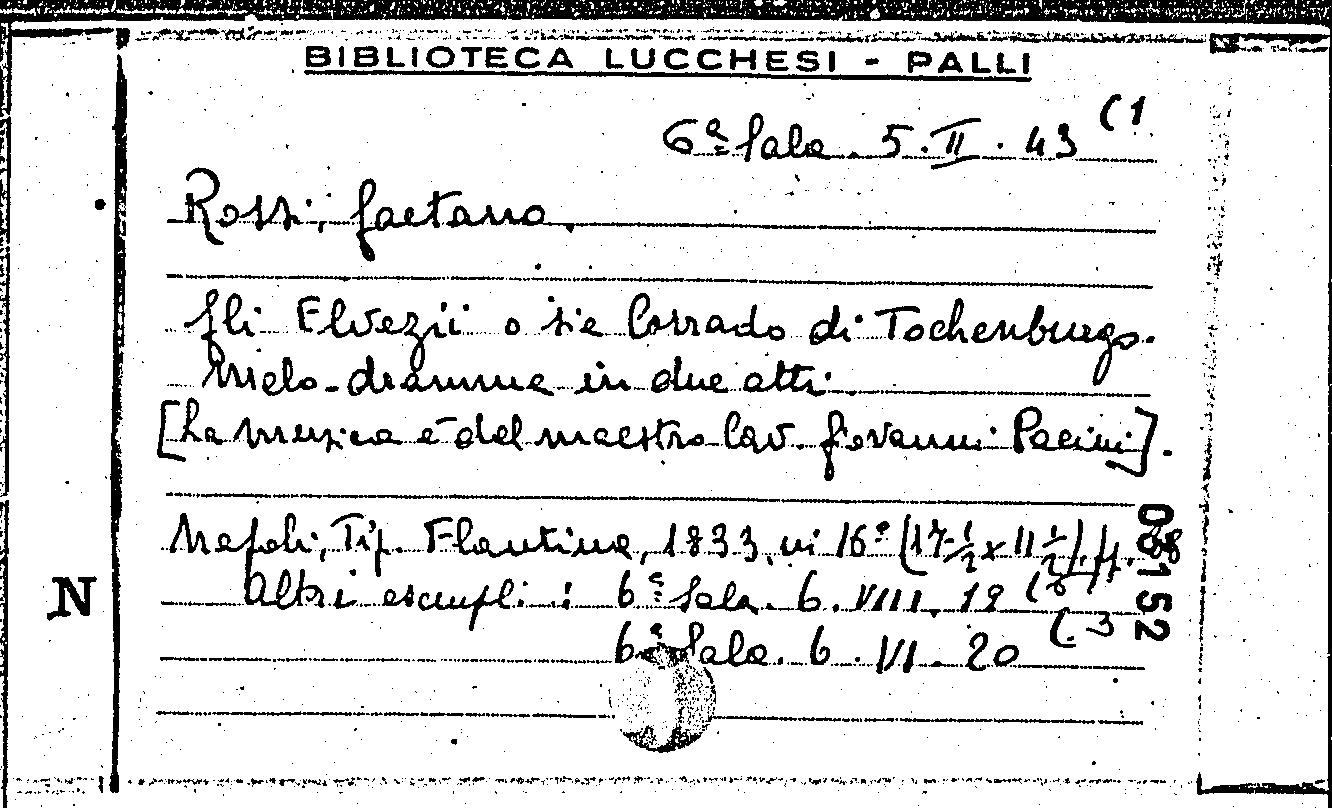 BIBLIOTECA LUCCHESI - PALLI
6ª Sala. 5. II. 43 (1
Rossi, Gaetano.
Gli Elvezii o sie Corrado di Tochenburgo.
Melo-dramma in due atti.
[La musica è del maestro Cav. Giovanni Pacini].
Napoli, Tip. Flautina, 1833, in 16° (17 1/2 x 11 1/2),
Altri esempli: 6ª Sala. 6. VIII. 19
6ª Sala. 6. VI. 20 (3
N